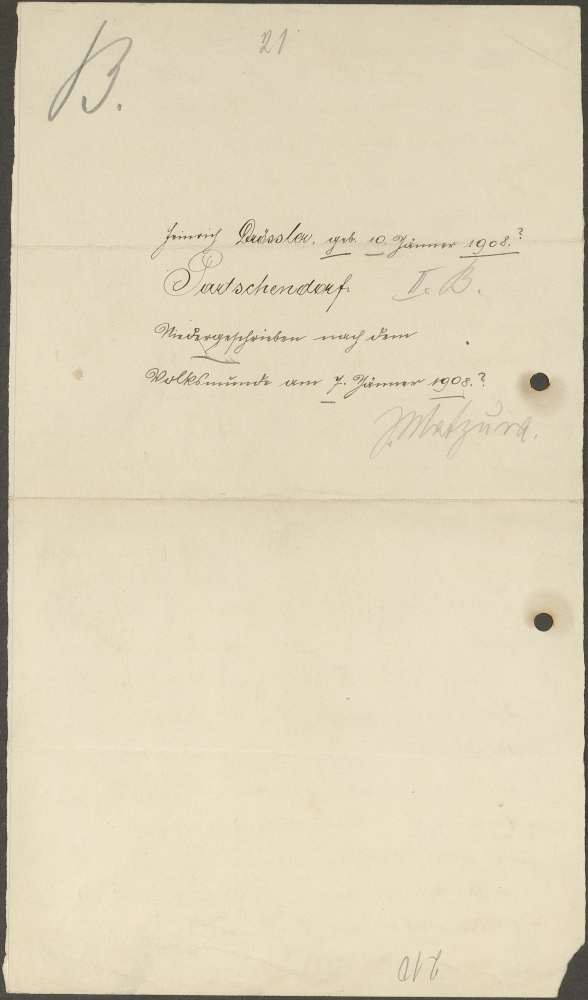 B.
21
Heinrich Drössler, geb. 10. Jänner 1908.?
Partschendorf. II. B.
Niedergeschrieben nach dem
Volksmunde am 7. Jänner 1908.?
J. Matzura.